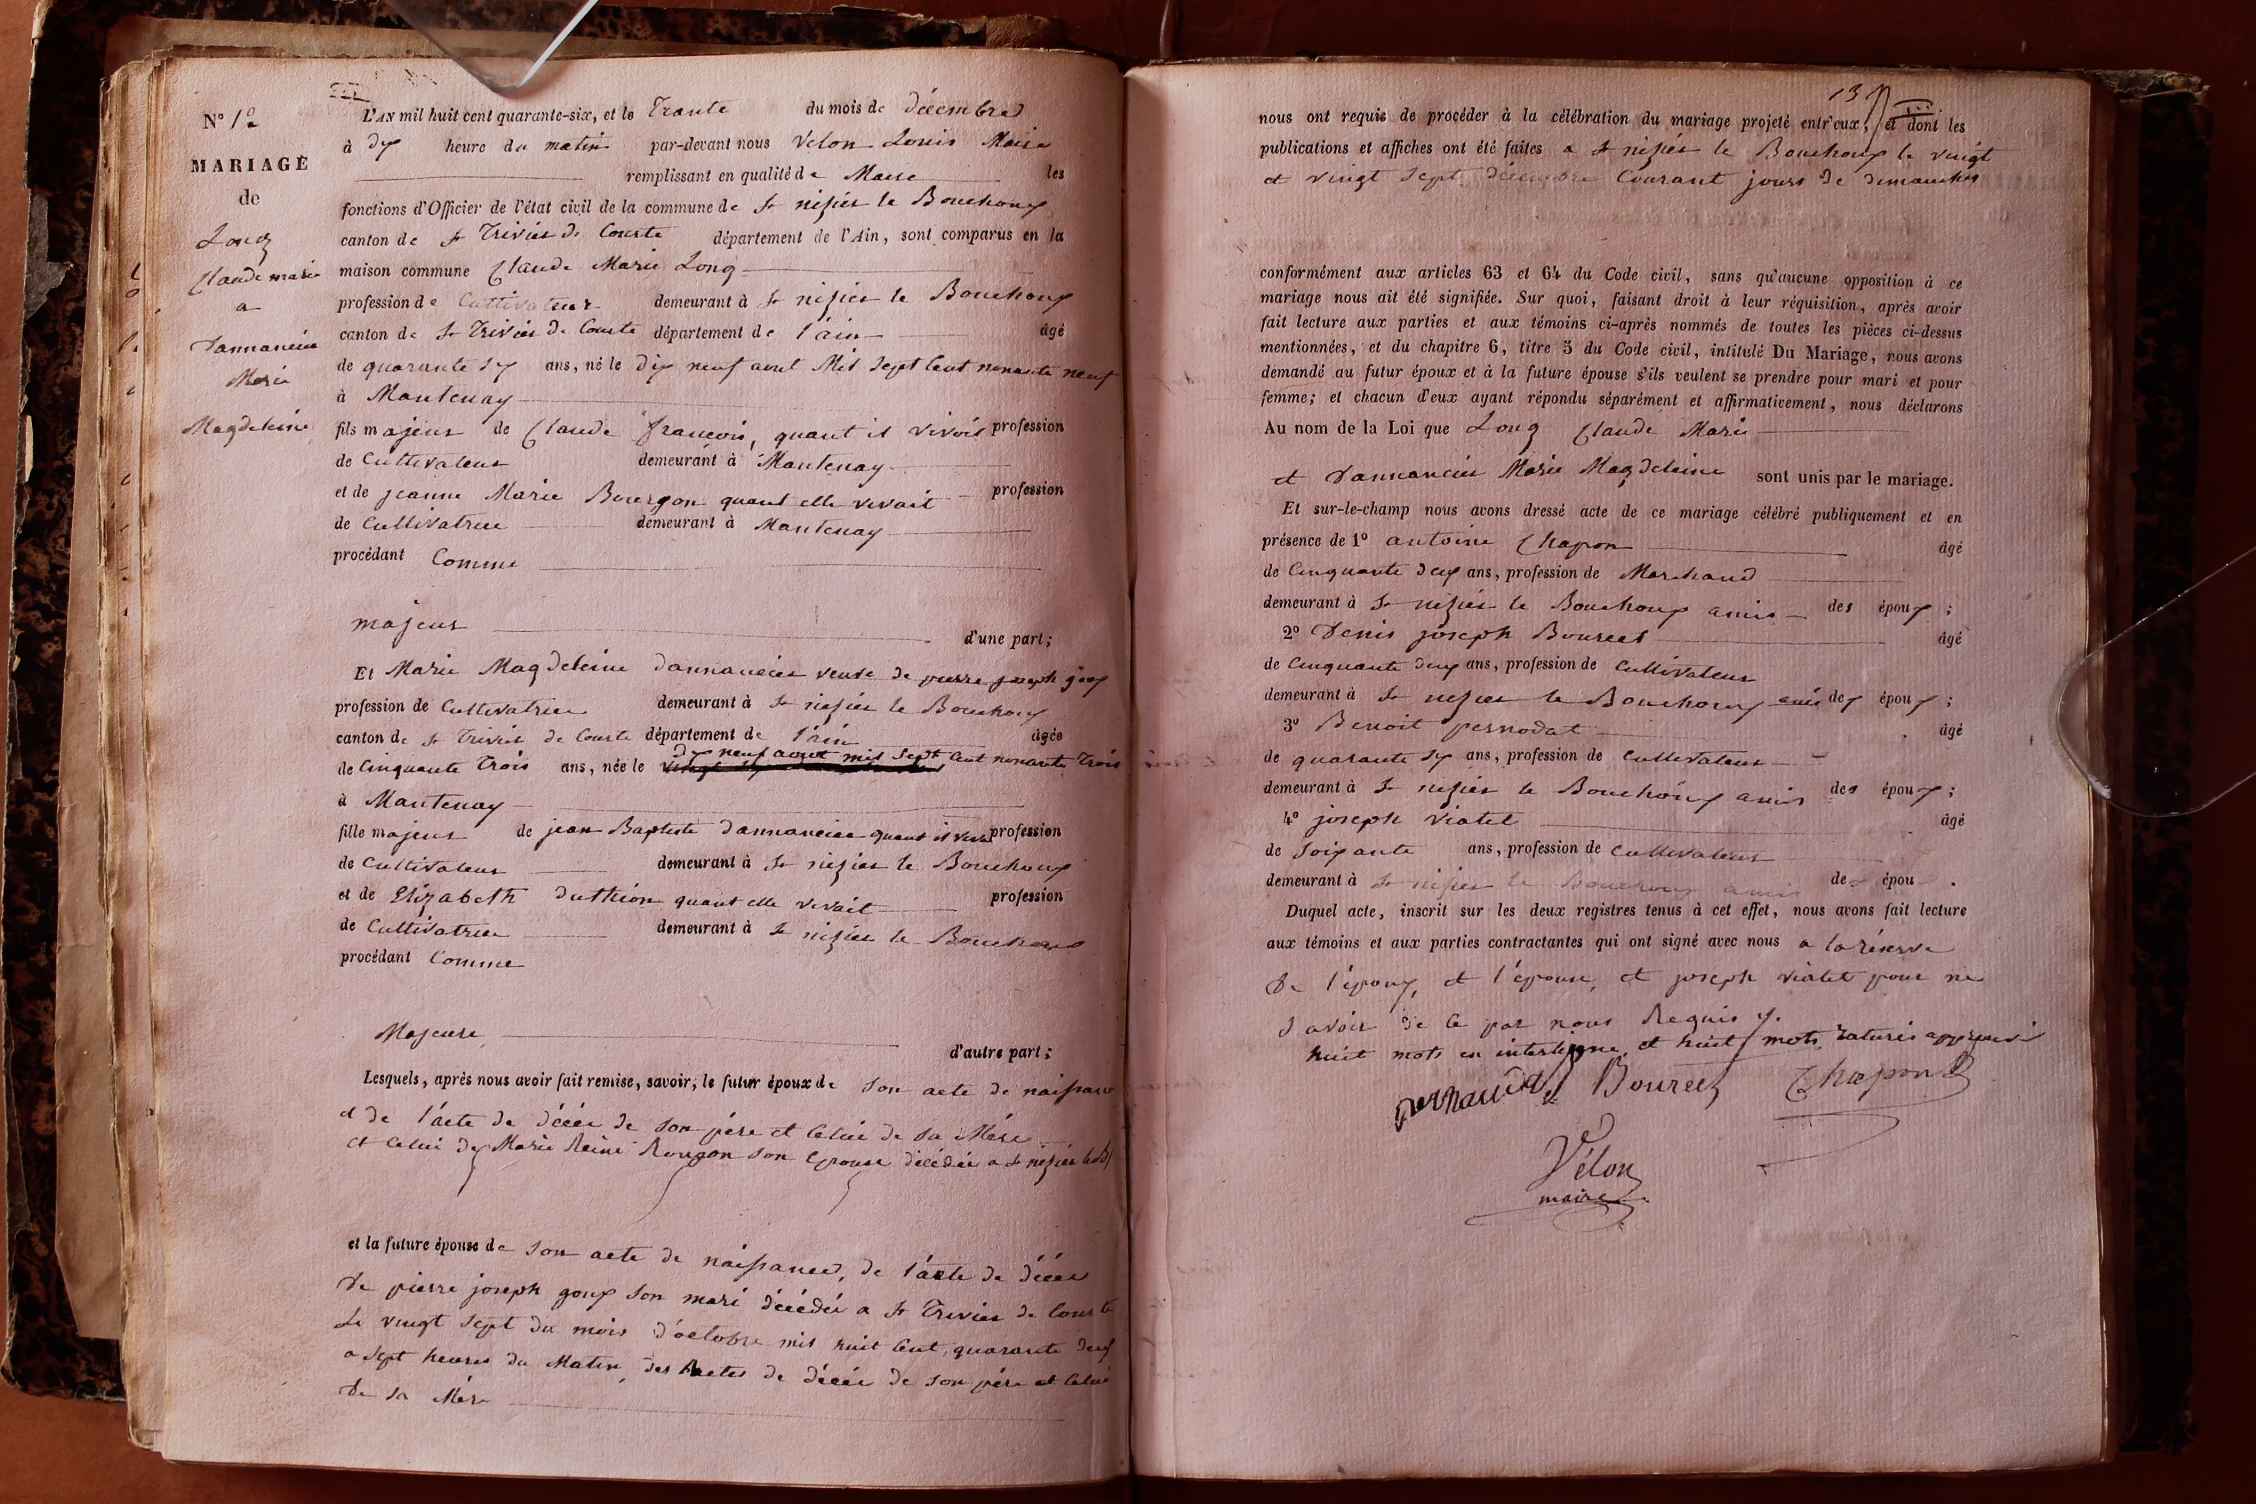 N° 12
MARIAGE
de
Long
Claude marie
a
Dannancier
Marie
Magdeleine
L'AN mil huit cent quarante-six, et le Trante du mois de décembre
à dix heure du matin par-devant nous Velon Louis Maire
remplissant en qualité de Maire les
fonctions d'Officier de l'état civil de la commune de St nizier le Bouchoux
canton de St Trivier de Courte département de l'Ain, sont comparus en la
maison commune Claude Marie Long
profession de Cultivateur demeurant à St nizier le Bouchoux
canton de St Trivier de Courte département de l'ain âgé
de quarante six ans, né le dix neuf aout Mil sept Cent nonante neuf
à Mantenay
fils majeur de Claude françois, quant il vivoit profession
de Cultivateur demeurant à Mantenay
et de jeanne Marie Bourgon quant elle vivait profession
de Cultivatrice demeurant à Mantenay
procédant Comme
majeur d'une part;
Et Marie Magdeleine dannancier veuve de pierre joseph goux
profession de Cultivatrice demeurant à St nizier le Bouchoux
canton de St Trivier de Courte département de l'ain âgée
dix neuf aout mil sept
de Cinquante Trois ans, née le Cent nonante Trois
à Mantenay
fille majeur de jean Baptiste dannancier quant il vivai profession
de Cultivateur demeurant à St nizier le Bouchoux
et de Elizabeth duthion quant elle vivait profession
de Cultivatrice demeurant à St nizier le Bouchoux
procédant Comme
Majeure d'autre part;
Lesquels, après nous avoir fait remise, savoir; le futur époux de son acte de naissance
et de l'acte de décée de son père et Celui de sa Mère
et Celui de Marie Reine Rougon son Epouse décédée a St nizier le B
et la future épouse de son acte de naissance, de l'acte de décée
De pierre joseph goux son mari décédée a St Trivier de Courte
Le vingt sept du mois d'octobre mil huit Cent, quarante deux
a sept heures du Matin, des Actes de décée de son père et Celui
De sa Mère
137
nous ont requis de procéder à la célébration du mariage projeté entr'eux, et dont les
publications et affiches ont été faites a St nizier le Bouchoux le vingt
et vingt sept décembre Courant jours de dimanches
conformément aux articles 63 et 64 du Code civil, sans qu'aucune opposition à ce
mariage nous ait été signifiée. Sur quoi, faisant droit à leur réquisition, après avoir
fait lecture aux parties et aux témoins ci-après nommés de toutes les pièces ci-dessus
mentionnées, et du chapitre 6, titre 5 du Code civil, intitulé Du Mariage, nous avons
demandé au futur époux et à la future épouse s'ils veulent se prendre pour mari et pour
femme; et chacun d'eux ayant répondu séparément et affirmativement, nous déclarons
Au nom de la Loi que Long Claude Marie
et Dannancier Marie Magdeleine sont unis par le mariage.
Et sur-le-champ nous avons dressé acte de ce mariage célébré publiquement et en
présence de 1° antoine Chapon âgé
de Cinquante deux ans, profession de Marchand
demeurant à St nizier le Bouchoux amis des époux;
2° Denis joseph Bourcet âgé
de Cinquante deux ans, profession de Cultivateur
demeurant à St nizier le Bouchoux amis des époux;
3° Benoit pernodat âgé
de quarante six ans, profession de Cultivateur
demeurant à St nizier le Bouchoux amis des époux;
4° joseph Viatet âgé
de Soixante ans, profession de Cultivateur
demeurant à St nizier le Bouchoux amis des épou .
Duquel acte, inscrit sur les deux registres tenus à cet effet, nous avons fait lecture
aux témoins et aux parties contractantes qui ont signé avec nous a la réserve
De l'époux, et l'épouse, et joseph viatet pour ne
savoir de Ce par nous Requis y.
huit mots en interligne et huit mots raturés approuvé
Bourcet Chapon
Vélon
maire